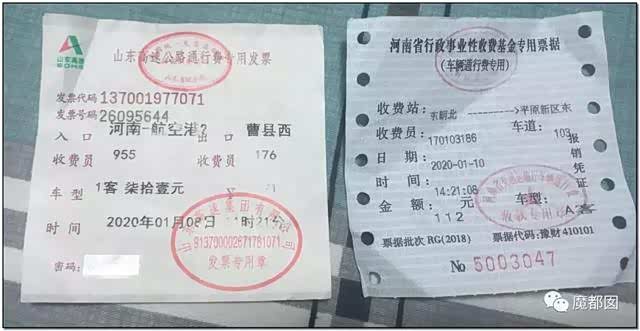 山东高速
山东高速公路通行费专用发票
发票代码137001977071
发票号码26095644
入口 河南-航空港? 出口 曹县西
收费员 955 收费员 176
车型 1客 柒拾壹元
时间 2020年01月08日 1时21分
密码:
山东高速集团有限公司
913700002671781071
发票专用章
河南省行政事业性收费基金专用票据
(车辆通行费专用)
收费站: 东明北---------->平原新区东
收费员: 170103186 车道: 103
日期: 2020-01-10
时间: 14:21:08 车型:
金额: 元
112 A客
报销凭证
收款专用
票据批次 RG(2018) 票据代码:豫财 410101
No 5003047
魔都囡